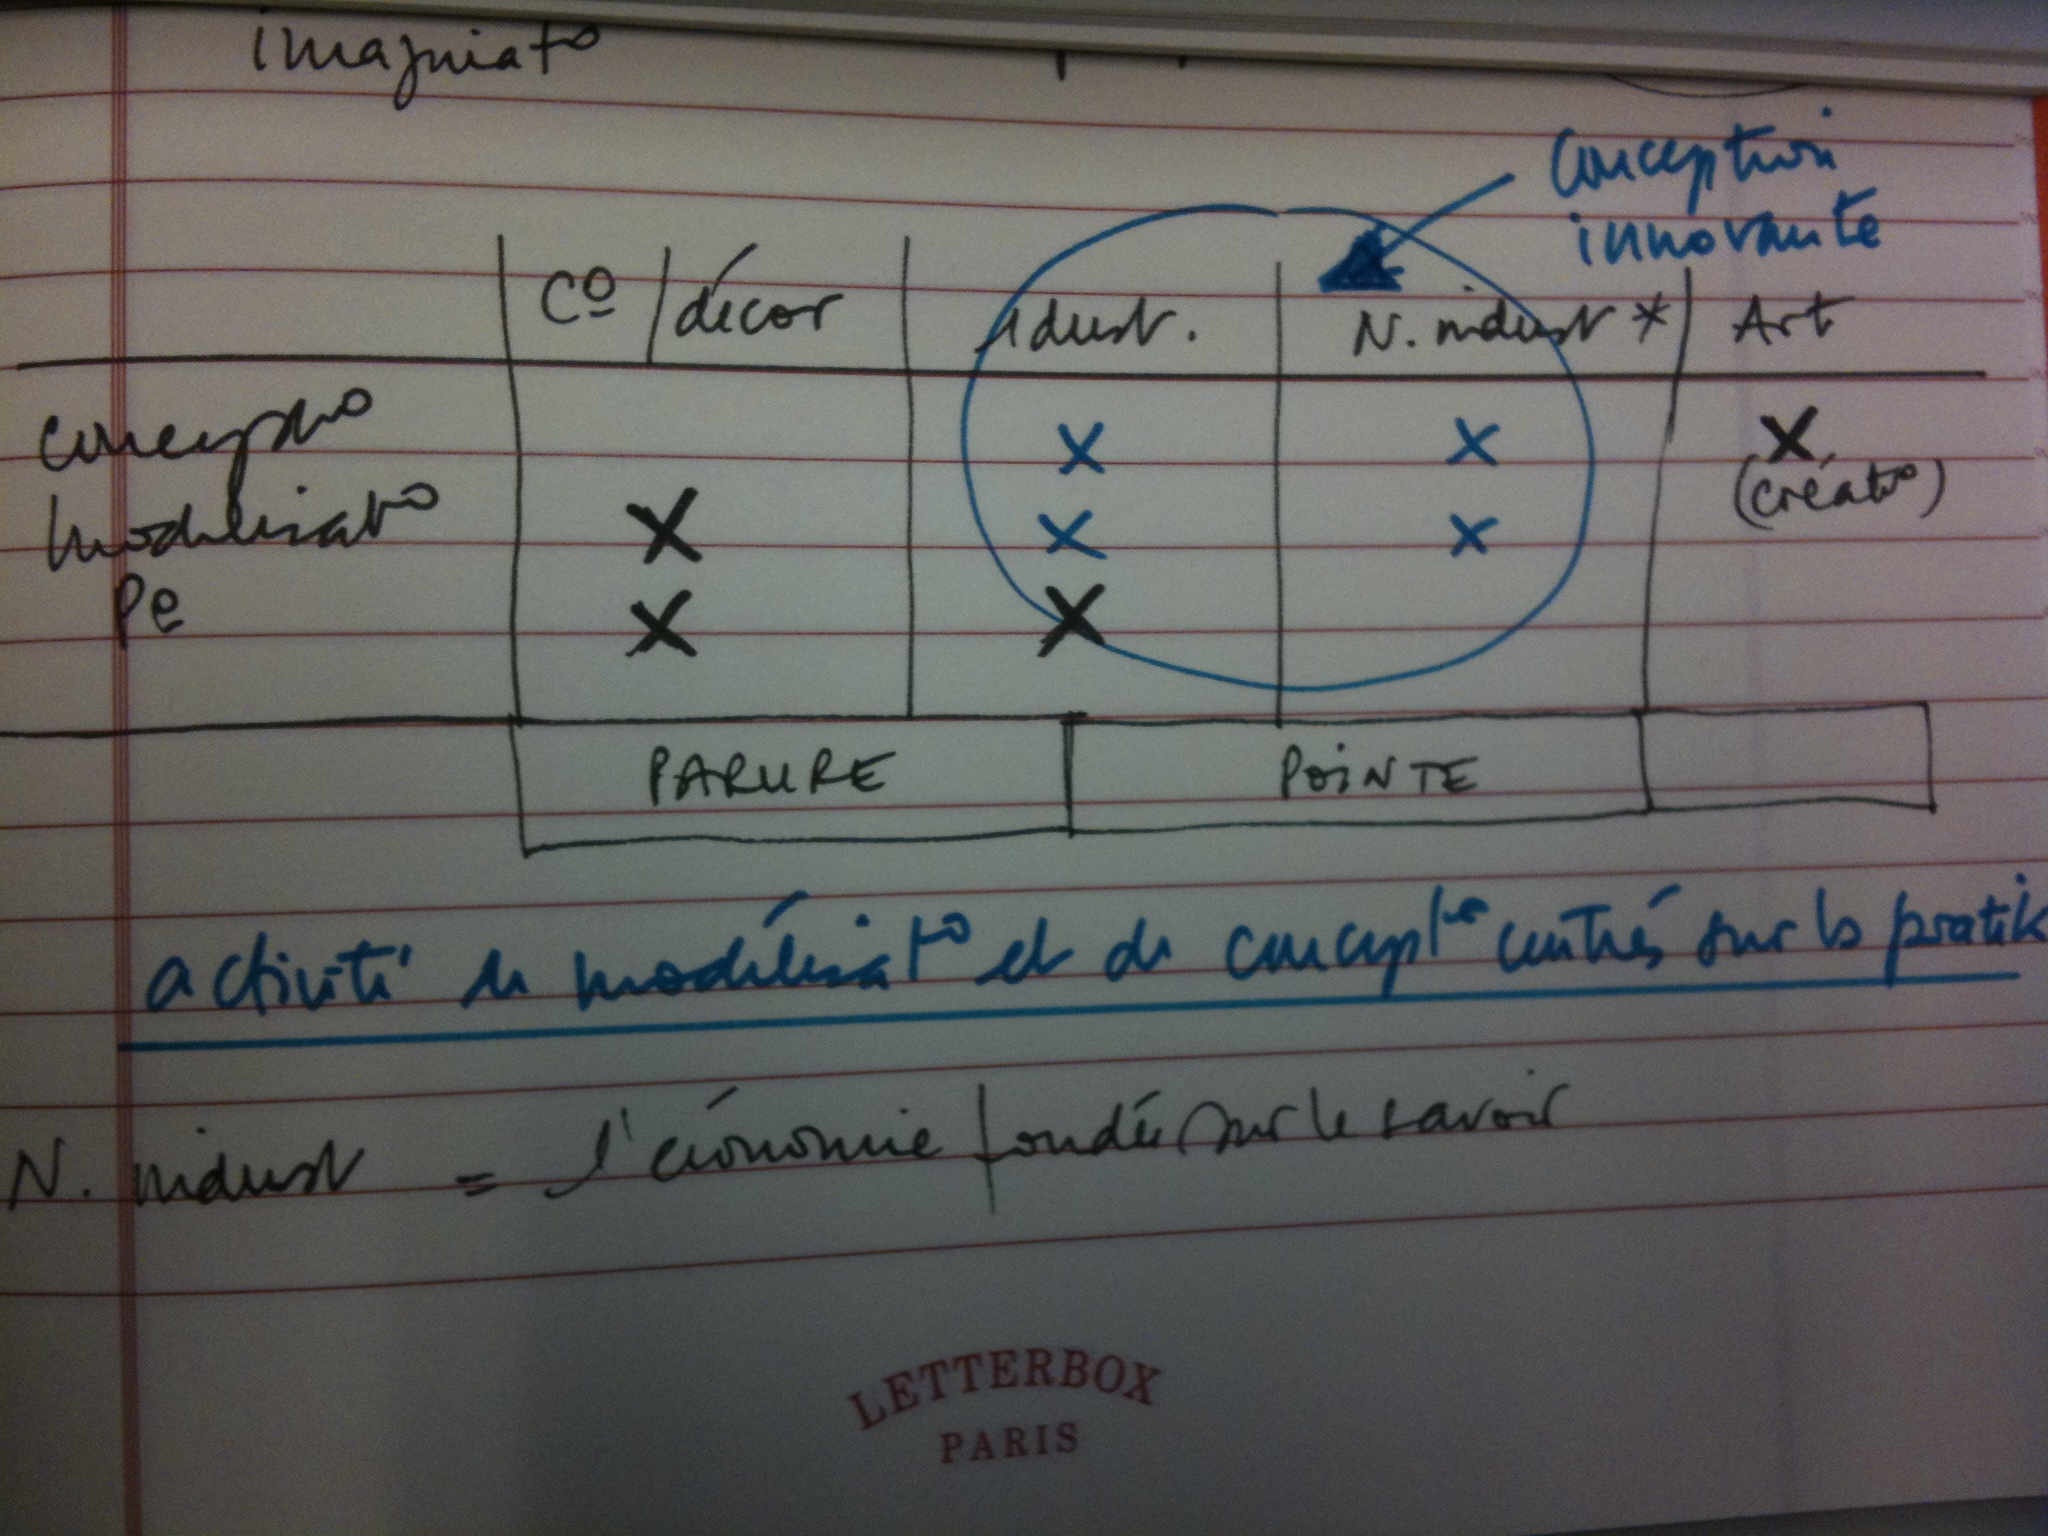 imaginat°
conception
innovante
C° / décor
idust.
N. indust *
Art
concept°
X
X
X
modélisat°
X
X
X
(créat°)
Pe
X
X
PARURE
POINTE
activité de modélisat° et de concept° centrés sur la pratik
N. indust = l'économie fondée sur le savoir
LETTERBOX
PARIS